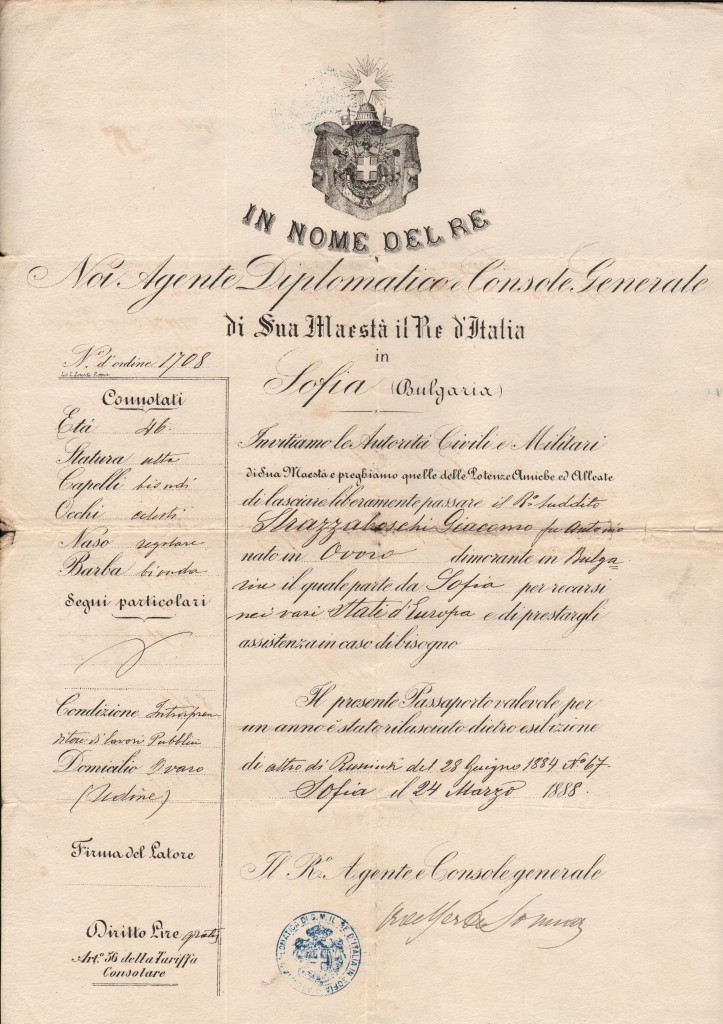 IN NOME DEL RE
Noi Agente Diplomatico e Console Generale
di Sua Maestà il Re d'Italia
in
Sofia (Bulgaria)
N.º d'ordine 1708
Connotati
Età 46
Statura alta
Capelli biondi
Occhi celesti
Naso regolare
Barba bionda
Segni particolari
Condizione Intrapren
ditore di lavori Pubblici
Domicilio Ovaro
(Udine)
Firma del Latore
Diritto Lire gratis
Art.º 56 della Tariffa
Consolare
Invitiamo le Autorità Civili e Militari
di Sua Maestà e preghiamo quelle delle Potenze Amiche ed Alleate
di lasciare liberamente passare il Rº suddito
Strazzaboschi Giacomo fu Antonio
nato in Ovoro dimorante in Bulga
ria il quale parte da Sofia per recarsi
nei vari Stati d'Europa e di prestargli
assistenza in caso di bisogno
Il presente Passaporto valevole per
un anno è stato rilasciato dietro esibizione
di altro di del 28 Giugno 1884 Nº 67.
Sofia il 24 Marzo 1888.
Il R.º Agente e Console generale
DIPLOMATICA DI S. M. IL RE D'ITALIA IN SOFIA